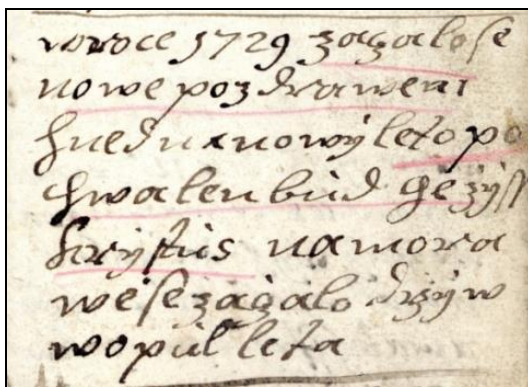 woroce 1729 zaczalo se
nowe pozdraweni
hned na nowy leto po
chwalen bud gezyst
krystus namora
wese zaczalo drzyw
wo pul leta